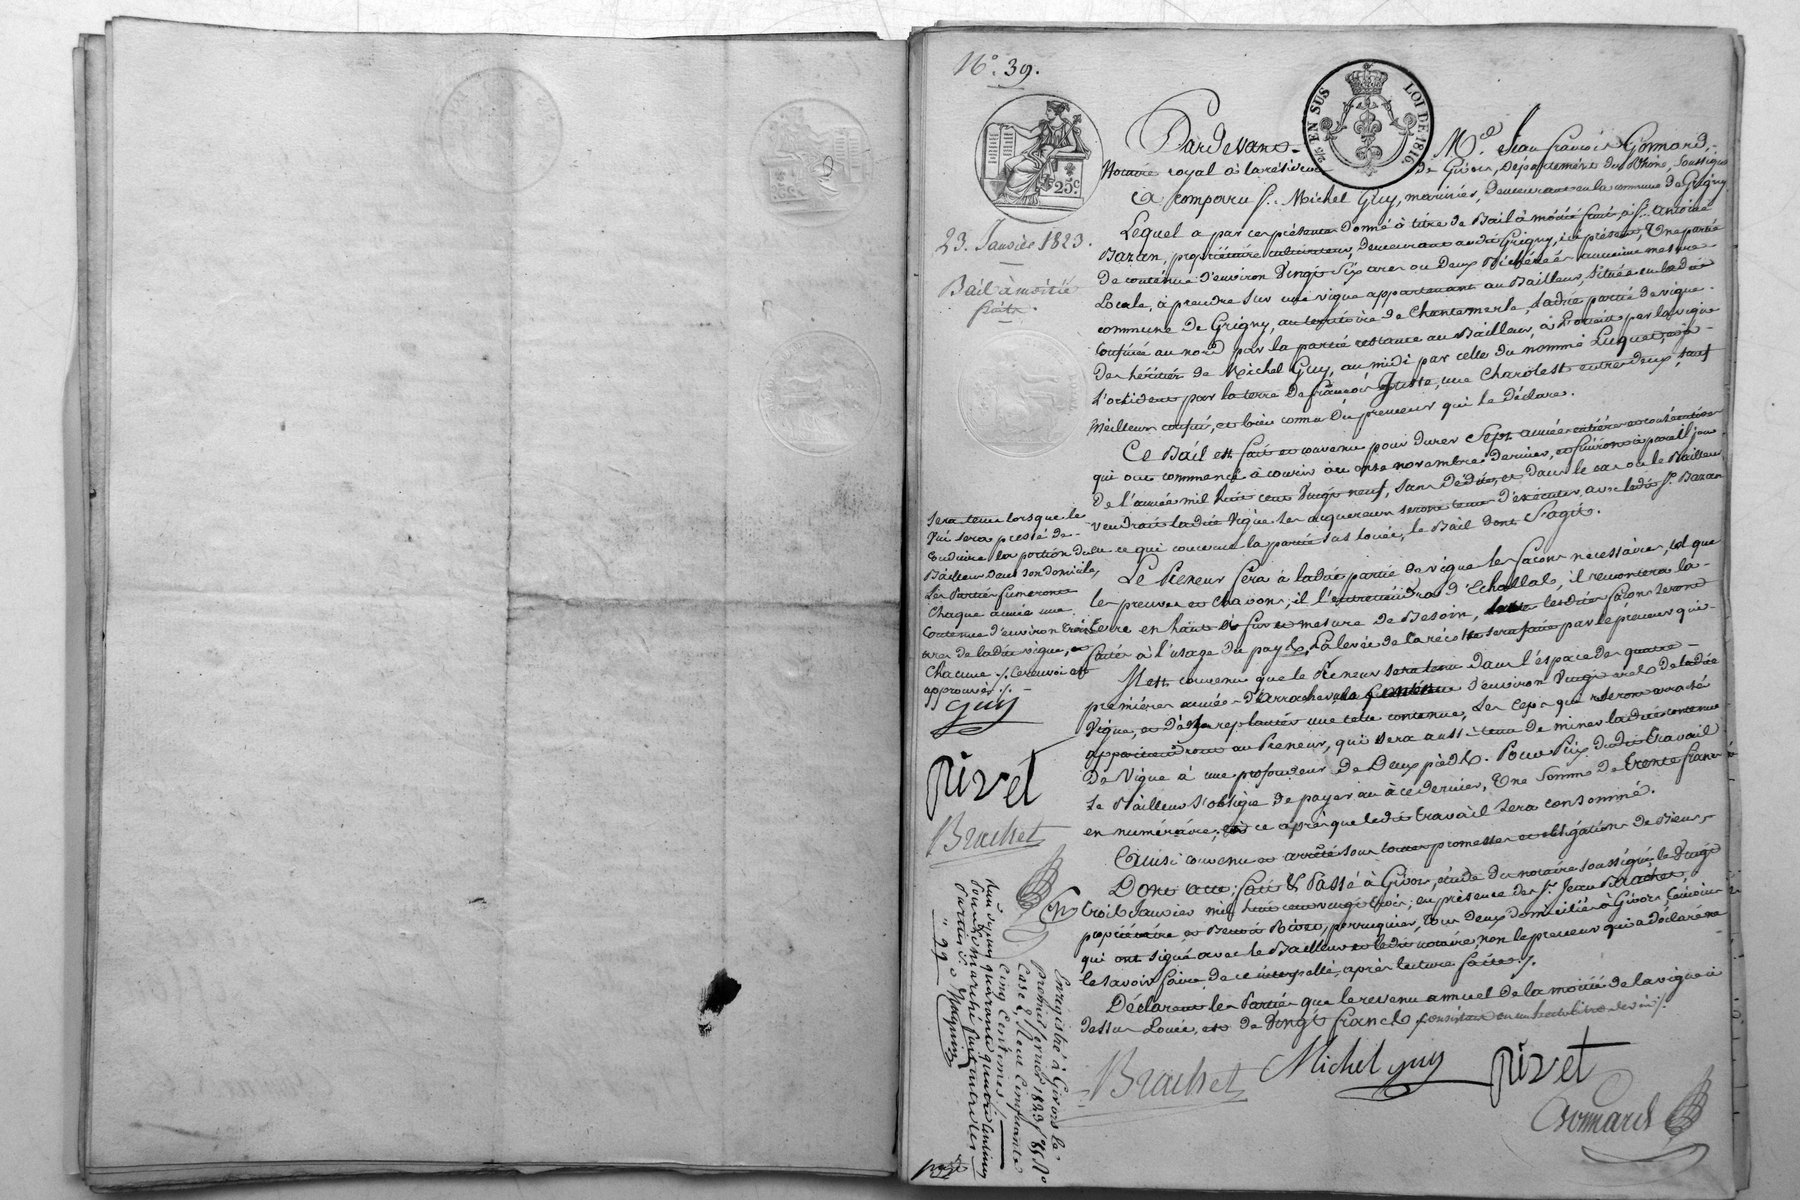 N.° 39.
25 EN SUS LOI DE 1816
25.c
23. Janvier 1823.
Bail à moitié
fruits.
Pardevant Me. Jean françois Gonnard,
Notaire royal à la résidence de Givors, Département du Rhône, soussigné
a comparu Sr. Michel Guy, marinier, demeurant en la commune de Grigny
Lequel a par ces présentes donné à titre de Bail à moitié fruit à Sr. Antoine
Bazan, propriétaire cultivateur, demeurant audit Grigny, ici présent, Une partie
de contenue d'environ Vingt Six ares ou Deux Bicherées ancienne mesure
Locale, à prendre sur une vigne appartenant au Bailleur, située en ladite
commune de Grigny, au territoire de Chantemerle, Ladite partie de vigne
confinée au nord par la partie restante au Bailleur, à l'orient par la vigne
des héritiers de Michel Guy, au midi par celle du nommé Luquet, et à
L'occident par la terre de françois Juste, une Charolest entre deux, sauf
meilleurs confins, et bien connu du preneur qui le déclare.
Ce Bail est fait et convenu pour durer Sept années entières et consécutives
qui ont commencé à courir au onze novembre dernier, et finiront à pareil jour
de l'année mil huit cent Vingt neuf, sans dédite, et dans le cas où le Bailleur
vendrait ladite Vigne les acquereurs seront tenus d'exécuter avec ledit Sr. Bazan
en ce qui concerne la partie sus louée, le Bail dont s'agit.
Le Preneur fera à ladite partie de vigne les façons nécessaires, tel que
les preuves et chavons; il l'entretiendra d'Echallats, il remontera la
terre en haut à fur et mesure de Besoin, lesdites façons seront
faites à l'usage du pays, La levée de la récolte sera faite par le preneur qui
sera tenu lorsque le
Vin sera pressé de
conduire la portion du
Bailleur dans son domicile,
Les Parties fumeront
Chaque année une
contenue d'environ trois
ares de ladite vigne, et
Chacune ./. le renvoi est
approuvé ./.
Guy
Rivet
Brachet
Il est convenu que le Preneur sera tenu dans l'espace des quatre
premières années d'arracher la contenue d'environ Vingt ares de ladite
Vigne, et de la replanter une telle contenue, Les Ceps qui seront arrachés
appartiendront au Preneur, qui sera aussi tenu de miner ladite contenue
de Vigne à une profondeur de Deux pieds. Pour Prix dudit travail
Le Bailleur s'oblige de payer à ce dernier, Une Somme de trente francs
en numéraire, et ce après que ledit travail sera consommé.
Ainsi convenu et arrêté sous toutes promesses et obligations de Biens,
Dont acte; fait & Passé à Givors, étude du notaire soussigné, le Vingt
trois Janvier mil huit cent vingt trois; en présence des Sr. Jean Brachet,
propriétaire et Benoit Rivet, perruquier, tous deux domiciliés à Givors témoins
qui ont signé avec le Bailleur et ledit notaire, non le preneur qui a déclaré ne
le savoir faire de ce interpellé, après lecture faite ./.
Déclarent les Parties que le revenu annuel de la moitié de la vigne ci
dessus Louée, est de Vingt francs
Brachet Michel guy Rivet
Gonnard
Enregistré à Givors le
Premier février 1823 f°
Case 8, Reçu Cinquante
Cinq Centimes ./.